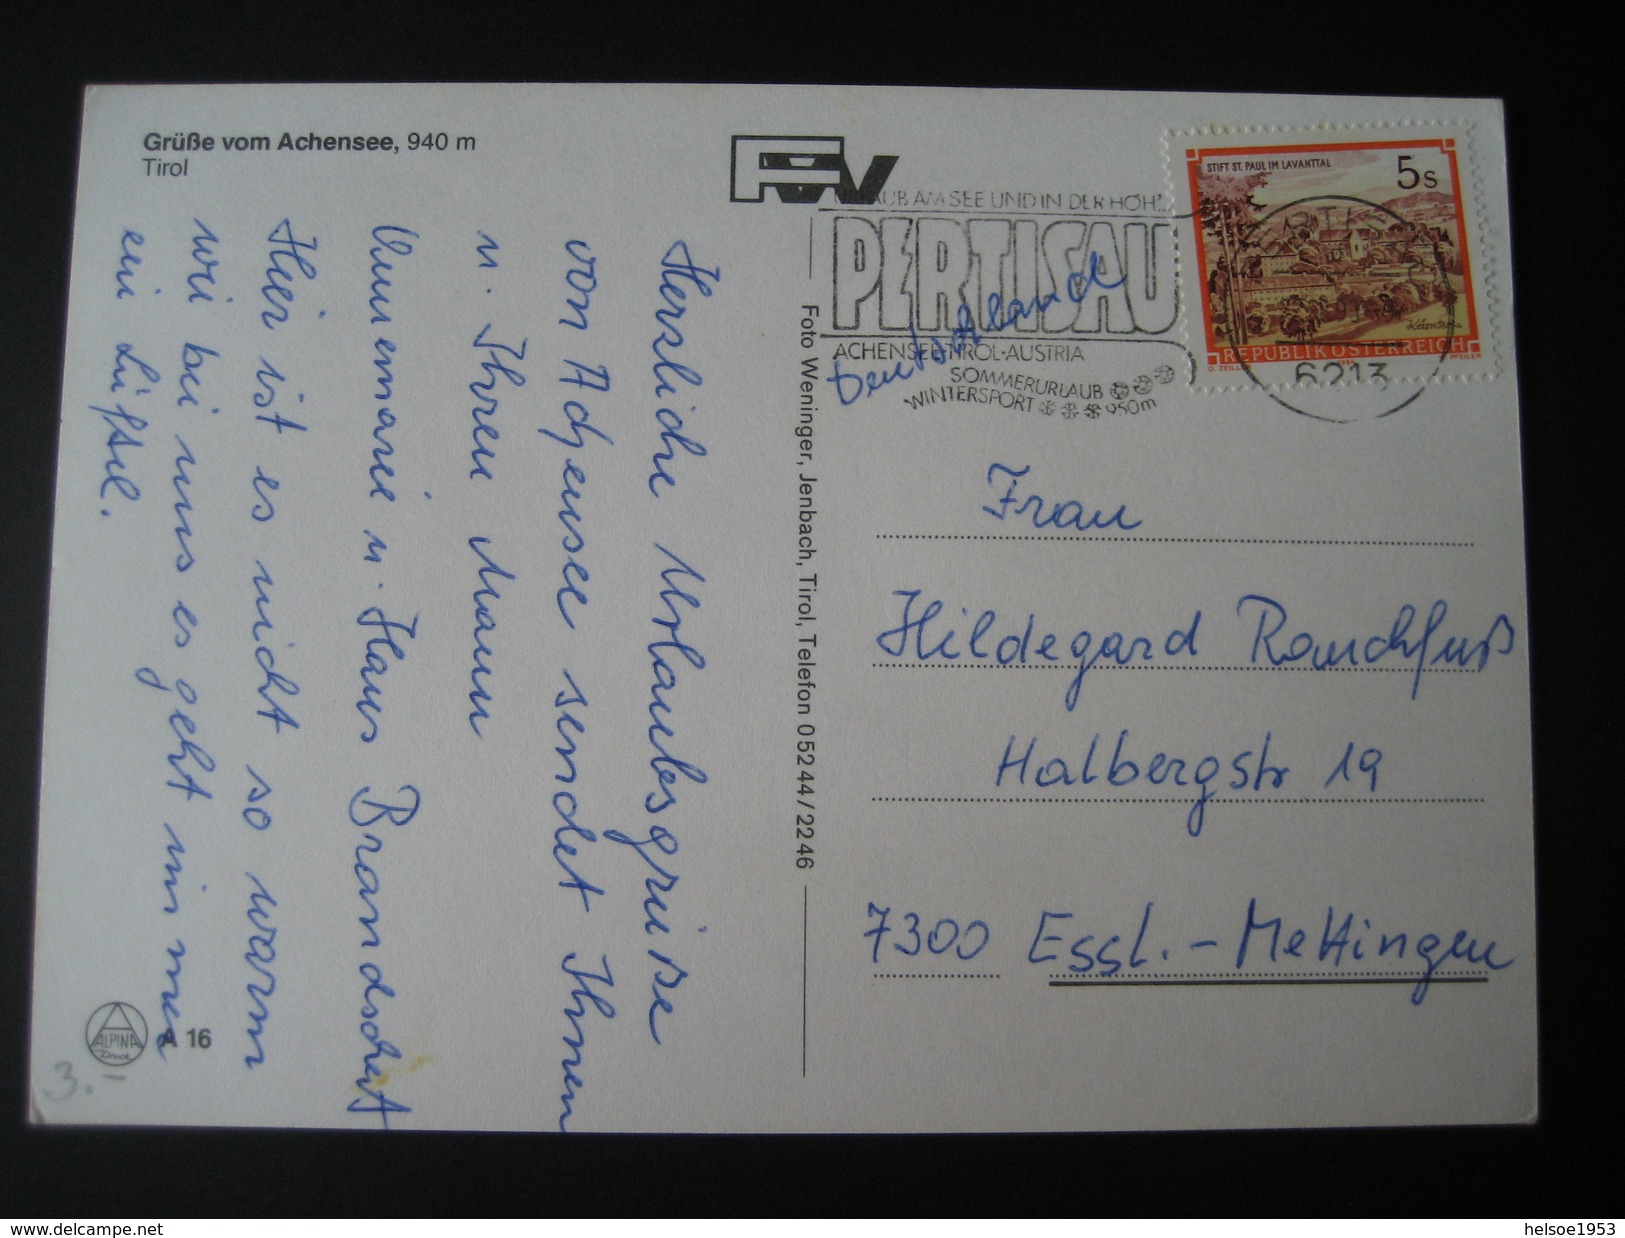 Grüße vom Achensee, 940 m
Tirol
Herzliche Urlaubsgrüße
von Achensee sendet Ihnen
u. Ihren Mann
Annemarie u. Hans Brandschert
Hier ist es nicht so warm
wie bei uns es geht immer
ein Lüftel.
Foto Weninger, Jenbach, Tirol, Telefon 05244/2246
ALPINA
Druck
A 16
3.-
URLAUB AM SEE UND IN DER HÖH'
PERTISAU
ACHENSEE TIROL-AUSTRIA
SOMMERURLAUB
WINTERSPORT 950m
Deutschland
STIFT ST. PAUL IM LAVANTTAL
5 S
Kärnten
REPUBLIK ÖSTERREICH
PFEILER
6213
Frau
Hildegard Rauchfuß
Halbergstr 19
7300 Essl.-Mettingen
delcampe.net
helsoe1953